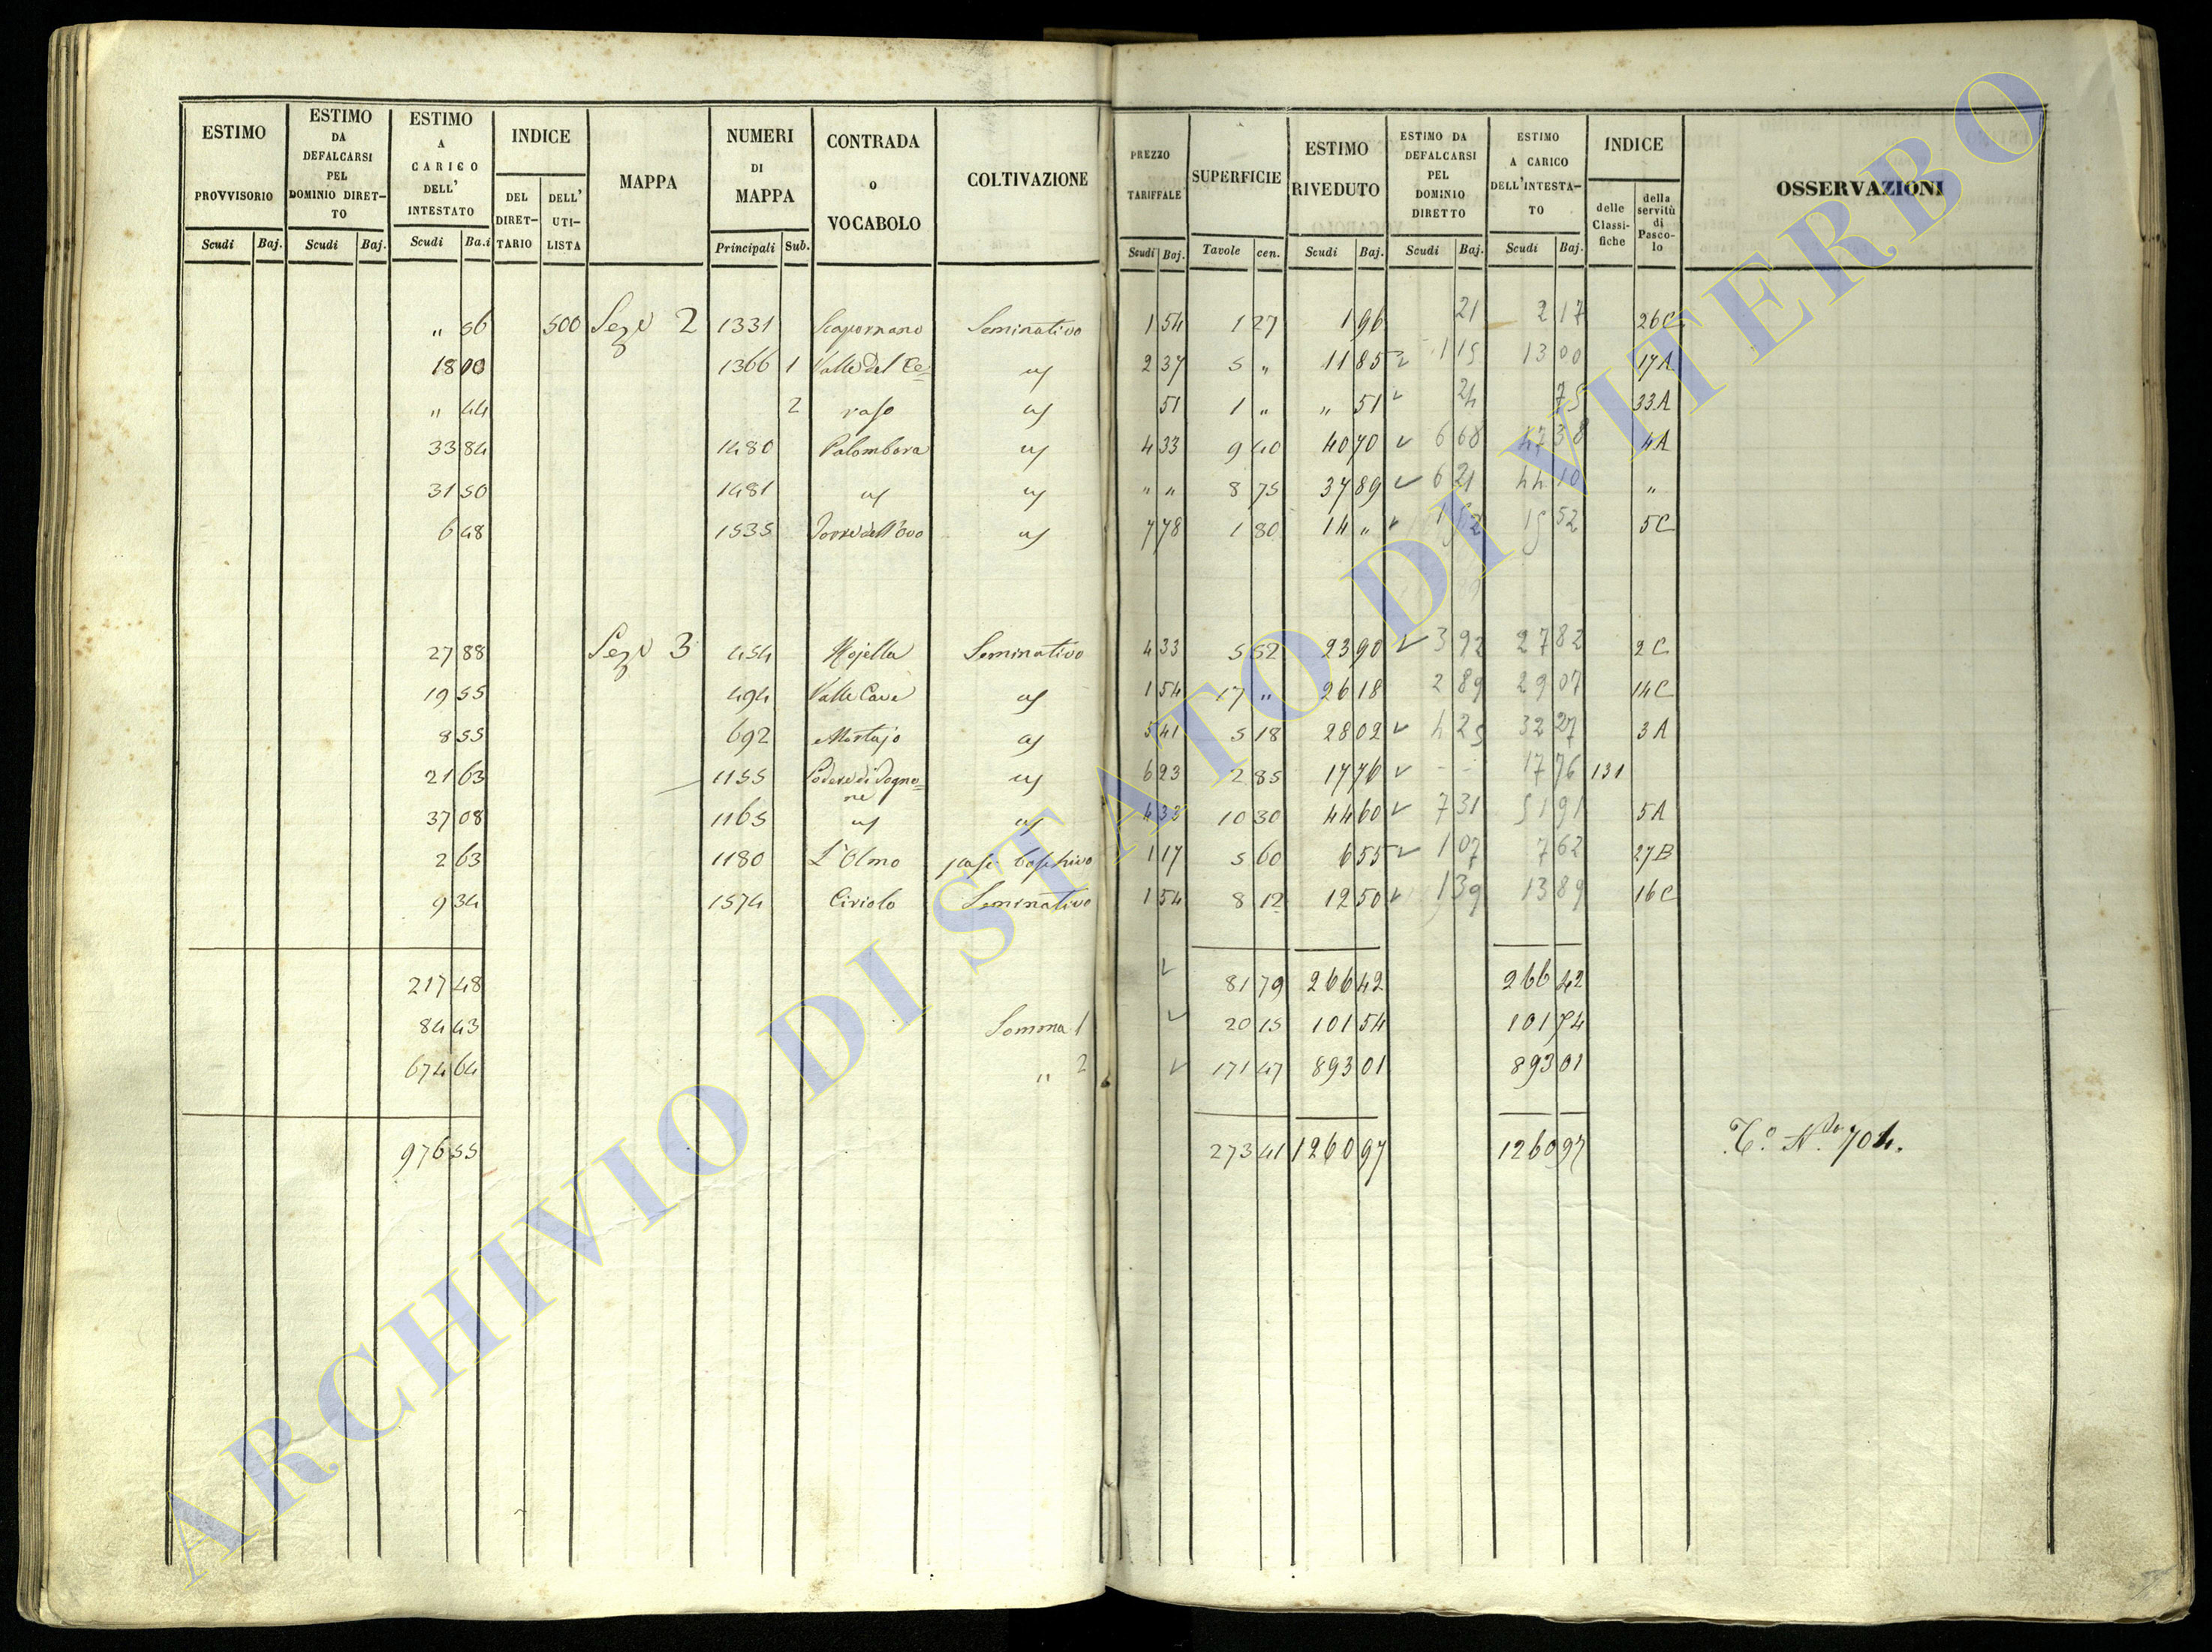 ESTIMO PROVVISORIO Scudi Baj.
ESTIMO DA DEFALCARSI PEL DOMINIO DIRETTO Scudi Baj.
ESTIMO A CARICO DELL' INTESTATO Scudi Ba.i
INDICE DEL DIRETTARIO DELL' UTILISTA
MAPPA
NUMERI DI MAPPA Principali Sub.
CONTRADA O VOCABOLO
COLTIVAZIONE
PREZZO TARIFFALE Scudi Baj.
SUPERFICIE Tavole cen.
ESTIMO RIVEDUTO Scudi Baj.
ESTIMO DA DEFALCARSI PEL DOMINIO DIRETTO Scudi Baj.
ESTIMO A CARICO DELL'INTESTATO Scudi Baj.
INDICE delle Classifiche della servitù di Pascolo
OSSERVAZIONI
" 56 500 Sez.e 2 1331 Seminativo 1 54 1 27 1 96 21 2 17 26C
18 00 1366 1 Valle del Ce= 2 37 5 " 11 85 1 15 13 00 17A
" 44 2 raso 51 1 " " 51 24 75 33A
33 84 1480 Palombara 4 33 9 40 40 70 6 68 47 38 4A
31 50 1481 " " 8 75 37 89 6 21 44 10 "
6 48 1535 Torre dell'Ovo 7 78 1 80 14 " 1 52 15 52 5C
27 88 Sez.e 3 454 Mojella Seminativo 4 33 5 52 23 90 3 92 27 82 2C
19 55 494 Valle Cava 1 54 17 " 26 18 2 89 29 07 14C
8 55 692 Mortajo 5 41 5 18 28 02 4 25 32 27 3A
21 63 1155 Podere di Pogno= 6 23 2 85 17 76 - - 17 76 131
ne
37 08 1165 4 33 10 30 44 60 7 31 51 91 5A
2 63 1180 L'Olmo pasc. boschivo 1 17 5 60 6 55 1 07 7 62 27B
9 34 1574 Ciriolo Seminativo 1 54 8 12 12 50 1 39 13 89 16C
217 48 81 79 266 42 266 42
84 43 Somma 1 20 15 101 54 101 54
674 64 " 2 171 47 893 01 893 01
976 55 273 41 1260 97 1260 97 T.o N.do 704.
ARCHIVIO DI STATO DI VITERBO